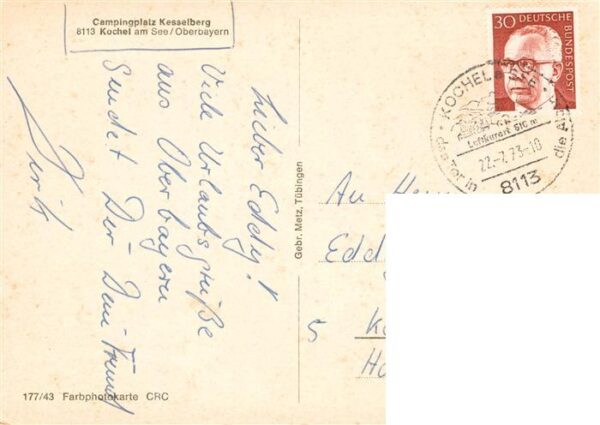 Campingplatz Kesselberg
8113 Kochel am See/Oberbayern
Lieber Eddy!
Viele Urlaubsgrüße
aus Oberbayern
sendet Dir Dein Freund
Gebr. Metz, Tübingen
177/43 Farbphotokarte CRC
30 DEUTSCHE
BUNDESPOST
KOCHEL a.
Luftkurort 610 m
22.-7.73-10
8113
An
Edd
5